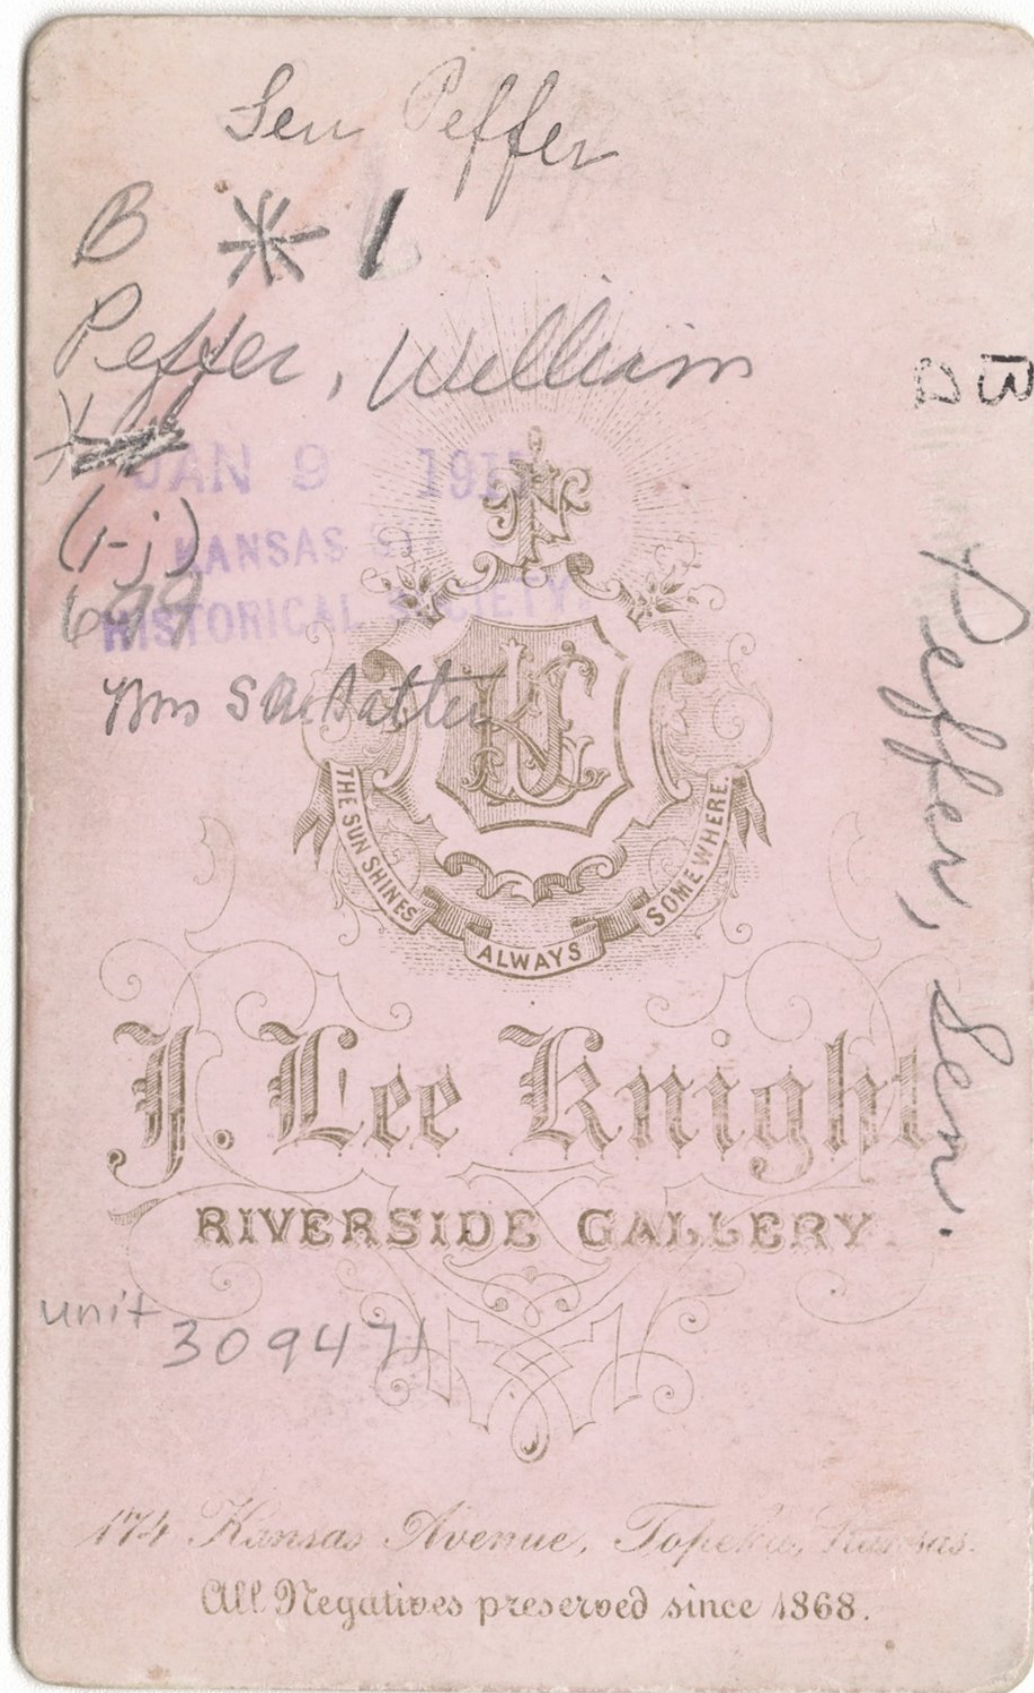 Sen Peffer
B * 1
Peffer, William
JAN 9 191
(1-j)
KANSAS
699
HISTORICAL SOCIETY.
Mrs S
THE SUN SHINES ALWAYS SOMEWHERE.
J. Lee Knight
RIVERSIDE GALLERY.
unit 309471
174 Kansas Avenue, Topeka, Kansas.
All Negatives preserved since 1868.
B
Peffer, Sen.